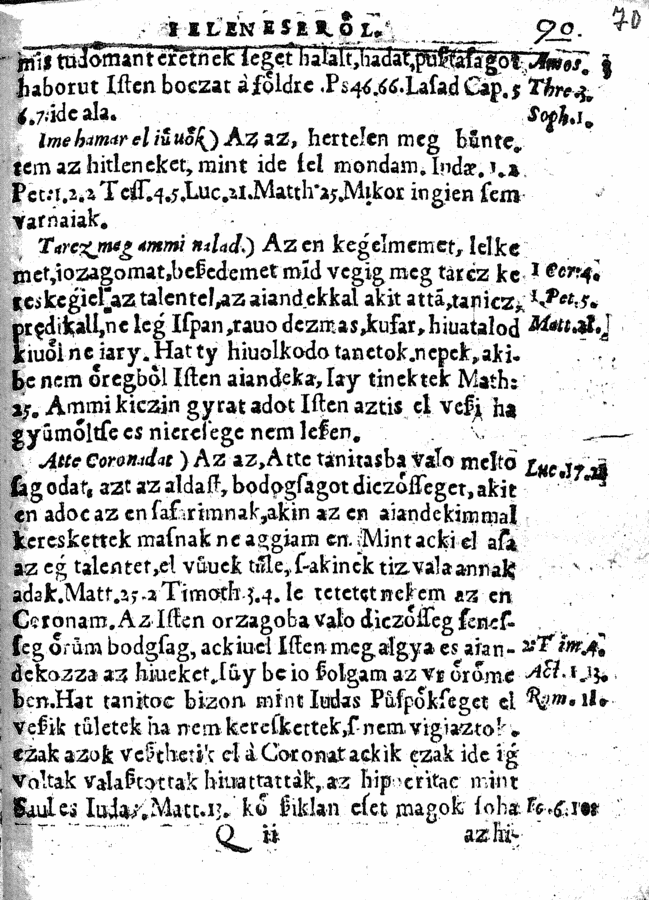 IELENESERŐL. 90. 70
mis tudomant eretnek seget halalt, hadat, pußtasagot Amos.
haborut Isten boczat à földre .Ps 46.66. Lasad Cap. 5 Thre 3.
6.7: ide ala. Soph. 1.
Ime hamar el iűuők) Az az, hertelen meg bűnte
tem az hitleneket, mint ide fel mondam. Indæ. 1. 2
Pet: 1. 2. 2 Tess. 4. 5. Luc. 21. Matth 25. Mikor ingien sem
varnaiak.
Tarcz meg ammi nalad.) Az en kegelmemet, lelke
met, iozagomat, beßedemet mīd vegig meg tarcz ke 1 Cor: 4.
reskegiel az talentel, az aiandekkal akit attā, tanicz, 1. Pet. 5.
prędikall, ne leg Ispan, rauo dezmas, kufar, hiuatalod Matt. 21.
kiuől ne iary. Hat ty hiuolkodo tanetok, nepek, aki-
be nem őregből Isten aiandeka, Iay tinektek Math:
25. Ammi kiczin gyrat adot Isten aztis el veßi ha
gyűmőltse es nieresege nem leßen.
Atte Coronadat) Az az, Atte tanitasba valo melto
sagodat, azt az aldast, bodogsagot diczősseget, akit Luc. 17.
en adoc az en safarimnak, akin az en aiandekimmal
kereskettek masnak ne aggiam en. Mint acki el asa
az eg talentet, el vűuek tűle, s-akinek tiz vala annak
adak. Matt. 25. 2 Timoth. 3. 4. le tetetet nekem az en
Coronam. Az Isten orzagoba valo diczősseg fenes-
seg őrűm bodgsag, ackiuel Isten meg algya es aian- 2 Tim. 4.
dekozza az hiueket, sűy be io ßolgam az vr őrőme Act. 1. 13.
ben. Hat tanitoc bizon mint Iudas Pűspőkseget el Rom. 11.
veßik tűletek ha nem kereskettek, s nem vigiaztok.
czak azok veßthetik el à Coronat ackik czak ide ig
voltak valaßtottak hiuattattak, az hipocritac mint
Saul es Iudas. Matt. 13. kő ßiklan eset magok soha Io. 6.
Q ii az hi-